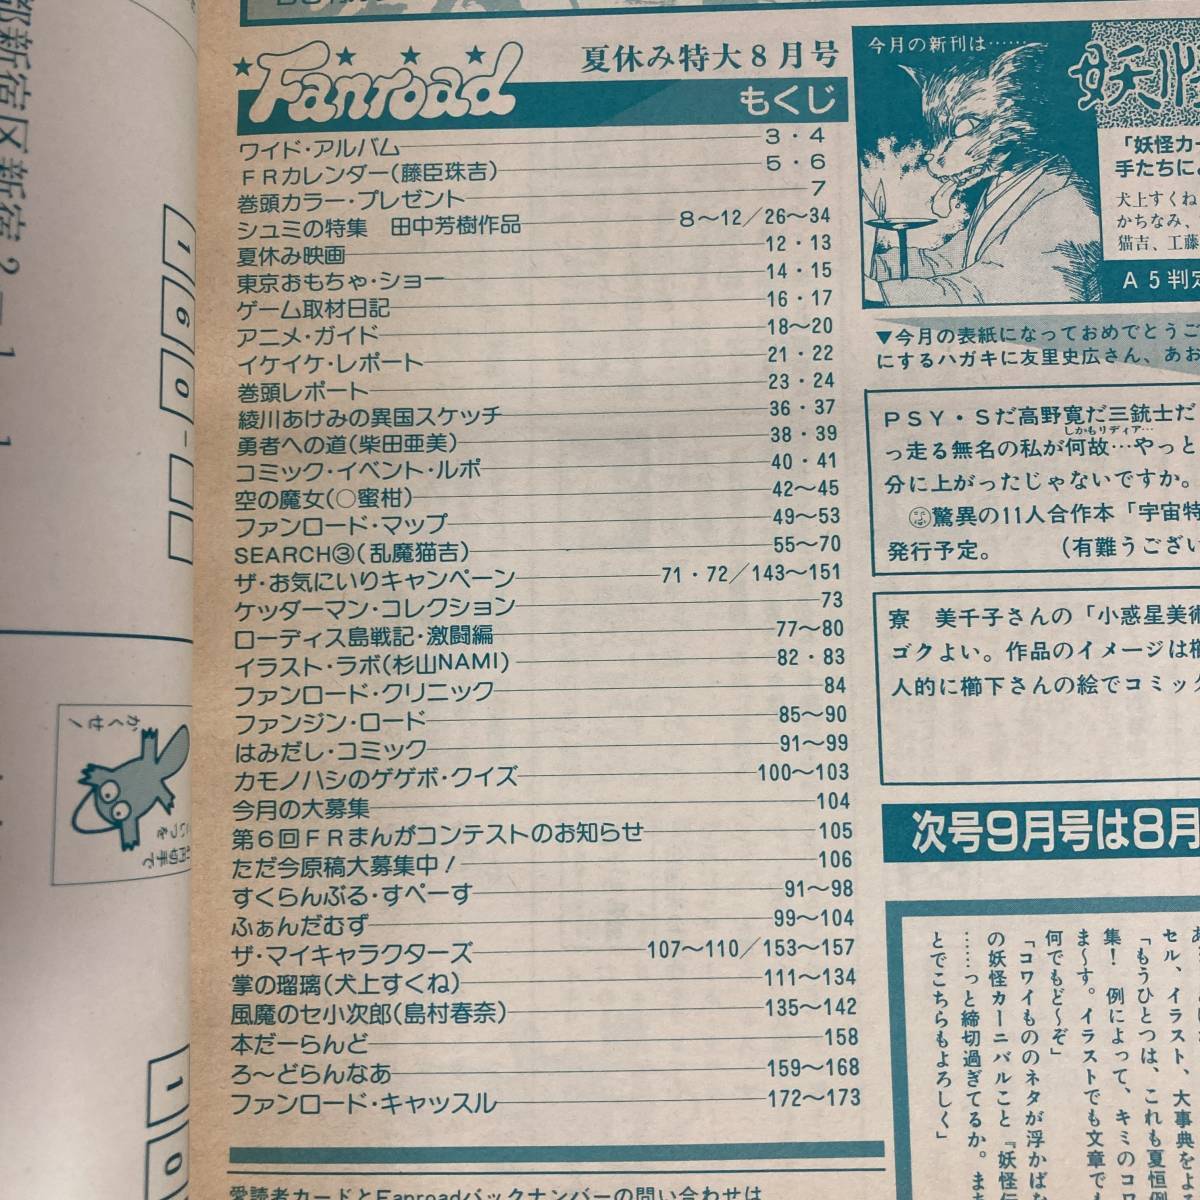 Fanroad
夏休み特大8月号
もくじ
ワイド・アルバム 3・4
FRカレンダー(藤臣珠吉) 5・6
巻頭カラー・プレゼント 7
シュミの特集 田中芳樹作品 8〜12/26〜34
夏休み映画 12・13
東京おもちゃ・ショー 14・15
ゲーム取材日記 16・17
アニメ・ガイド 18〜20
イケイケ・レポート 21・22
巻頭レポート 23・24
綾川あけみの異国スケッチ 36・37
勇者への道(柴田亜美) 38・39
コミック・イベント・ルポ 40・41
空の魔女(○蜜柑) 42〜45
ファンロード・マップ 49〜53
SEARCH③(乱魔猫吉) 55〜70
ザ・お気にいりキャンペーン 71・72/143〜151
ケッダーマン・コレクション 73
ローディス島戦記・激闘編 77〜80
イラスト・ラボ(杉山NAMI) 82・83
ファンロード・クリニック 84
ファンジン・ロード 85〜90
はみだし・コミック 91〜99
カモノハシのゲゲボ・クイズ 100〜103
今月の大募集 104
第6回FRまんがコンテストのお知らせ 105
ただ今原稿大募集中! 106
すくらんぶる・すぺーす 91〜98
ふぁんだむず 99〜104
ザ・マイキャラクターズ 107〜110/153〜157
掌の瑠璃(犬上すくね) 111〜134
風魔のセ小次郎(島村春奈) 135〜142
本だーらんど 158
ろ〜どらんなあ 159〜168
ファンロード・キャッスル 172〜173
愛読者カードとFanroadバックナンバーの問い合わせは
今月の新刊は……
妖怪
「妖怪カー
手たちによ
犬上すくね
かちなみ、
猫吉、工藤
A5判定
▼今月の表紙になっておめでとうご
にするハガキに友里史広さん、あお
PSY・Sだ高野寛だ三銃士だ
しかもリディア…
っ走る無名の私が何故…やっと
分に上がったじゃないですか。
驚異の11人合作本「宇宙特
発行予定。 (有難うござい
寮 美千子さんの「小惑星美術
ゴクよい。作品のイメージは櫛
人的に櫛下さんの絵でコミック
次号9月号は8月
セル、イラスト、大事典をよ
「もうひとつは、これも夏恒例
集! 例によって、キミのコ
ま〜す。イラストでも文章で
何でもど〜ぞ」
「コワイもののネタが浮かばな
の妖怪カーニバルこと『妖怪伝
……っと締切過ぎてるか。まち
とでこちらもよろしく」
都新宿区新宿2-
160-
かくせ!
切手で
10